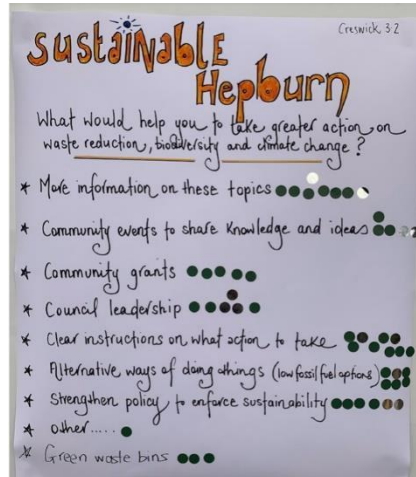 Creswick 3.2
SUStaiNablE
HepbuRn
What would help you to take greater action on
waste reduction, biodiversity and climate change?
* More information on these topics
* Community events to share knowledge and ideas
* Community grants
* Council leadership
* Clear instructions on what action to take
* Alternative ways of doing things (low fossil fuel options)
* Strengthen policy to enforce sustainability
* other.....
* Green waste bins